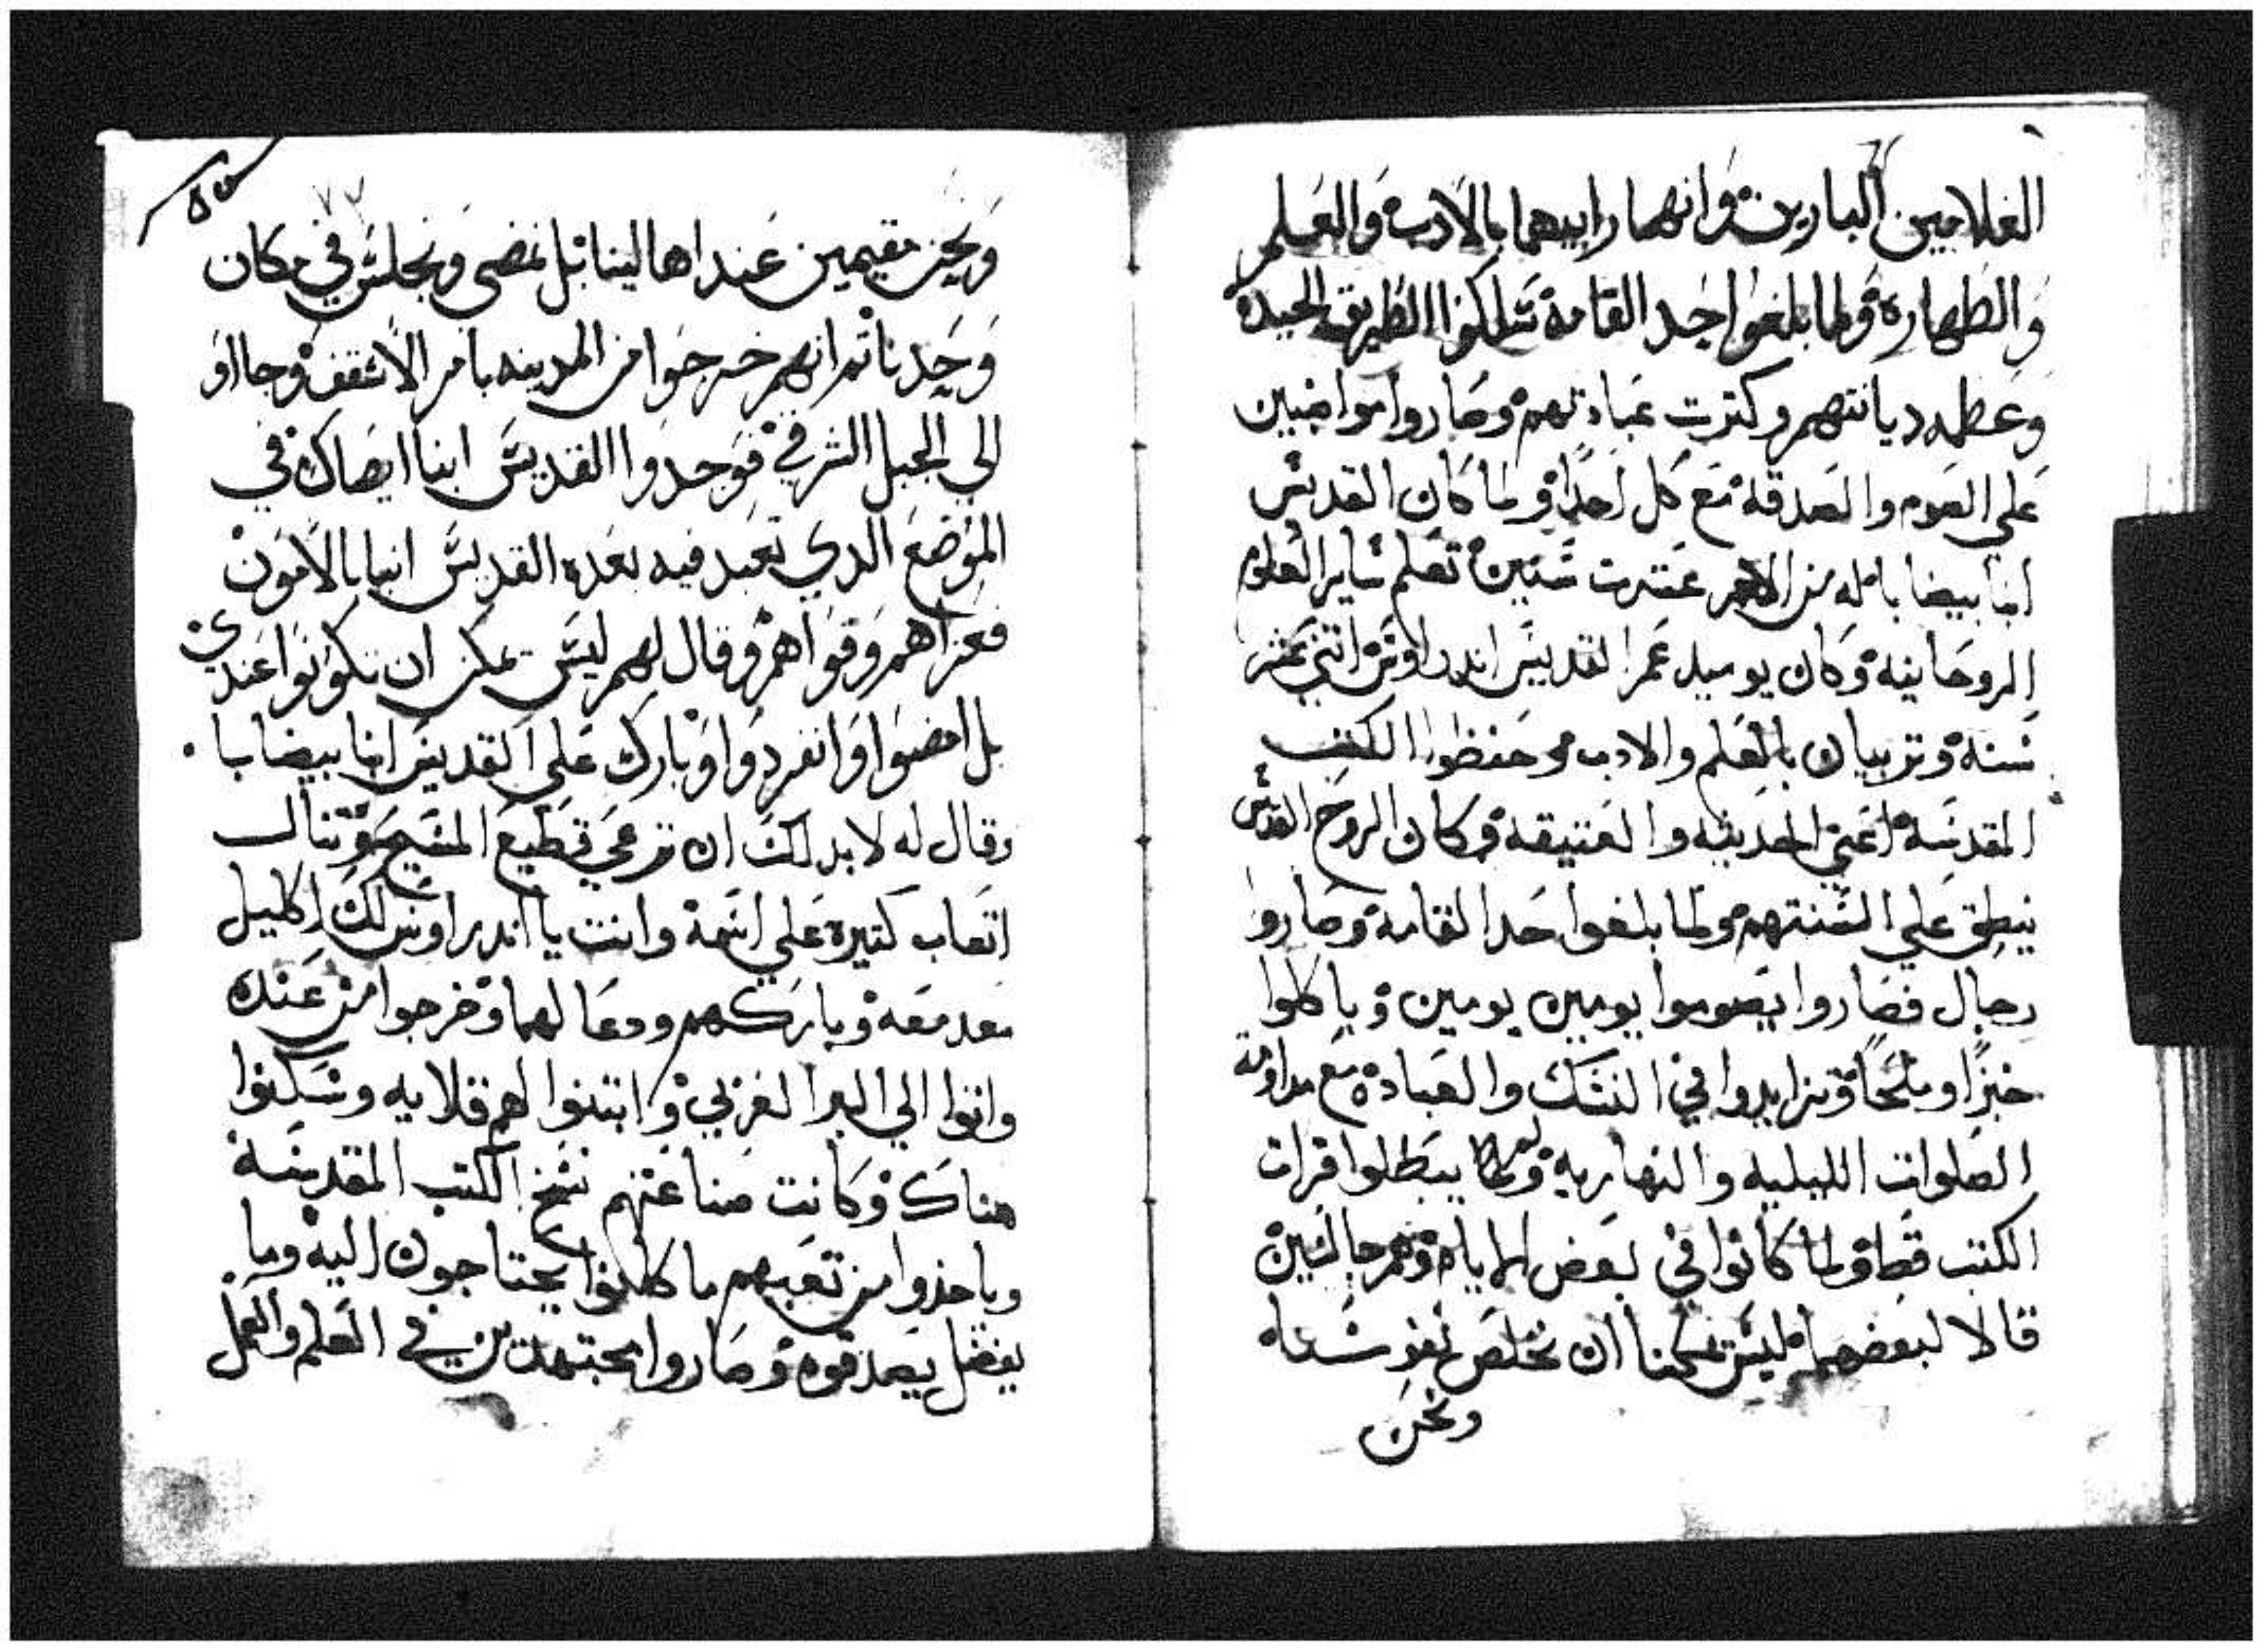 الغلامين البارين وانهما رابيهما بالادب والعلم
والطهارة ولما بلغوا حد القامة سلكوا الطريقه الجيدة
وعظمه ديانتهم وكترت عبادتهم وصاروا مواضبين
علي الصوم والصدقة مع كل احدا ولما كان القديس
انبا بيضابا له من العمر عشرت سنين تعلم ساير العلوم
الروحانية وكان يوميد عمر القديس اندراوس اتني عشر
سنة وتربيان بالعلم والادب وحفظوا الكتب
المقدسة اعني الحديثه والعتيقة وكان الروح القدس
ينطق علي السنتهم ولما بلغوا حد القامة وصاروا
رجال فصاروا يصوموا يومين يومين وياكلوا
خبزا وملحا وتزايدوا في النسك والعبادة مع مداومة
الصلوات الليليه والنهاريه ولم يبطلوا قرات
الكتب قط ولما كانوا في بعض الايام وهم جالسين
قالا لبعضهما ليس يمكنا ان نخلص نفوسنا
ونحن
٧٧
ونحن مقيمين عند اهالينا بل نمضي ونجلس في مكان
وحدنا ثم انهم خرجوا من المدينه بامر الاسقف وجااو
الي الجبل الشرقي فوجدوا القديس انبا ايصاك في
الموضع الدي تعبد فيه بعده القديس انبا بالامون
فعزاهم وقواهم وقال لهم ليس يمكن ان تكونوا عندي
بل امضوا وانفردوا وبارك علي القديس انبا بيضابا
وقال له لا بد لك ان ترعي قطيع المسيح وتنال
اتعاب كتيرة علي اسمه وانت يا اندراوس لك اكليل
معد معه وباركهم ودعا لهما وخرجوا من عنده
واتوا الي البر الغربي وابتنوا لهم قلايه وسكنوا
هناك وكانت صناعتهم نسخ الكتب المقدسة
وياخذوا من تعبهم ما كانوا يحتاجون اليه وما
يفضل يصدقوه وصاروا مجتهدين في العلم والعمل